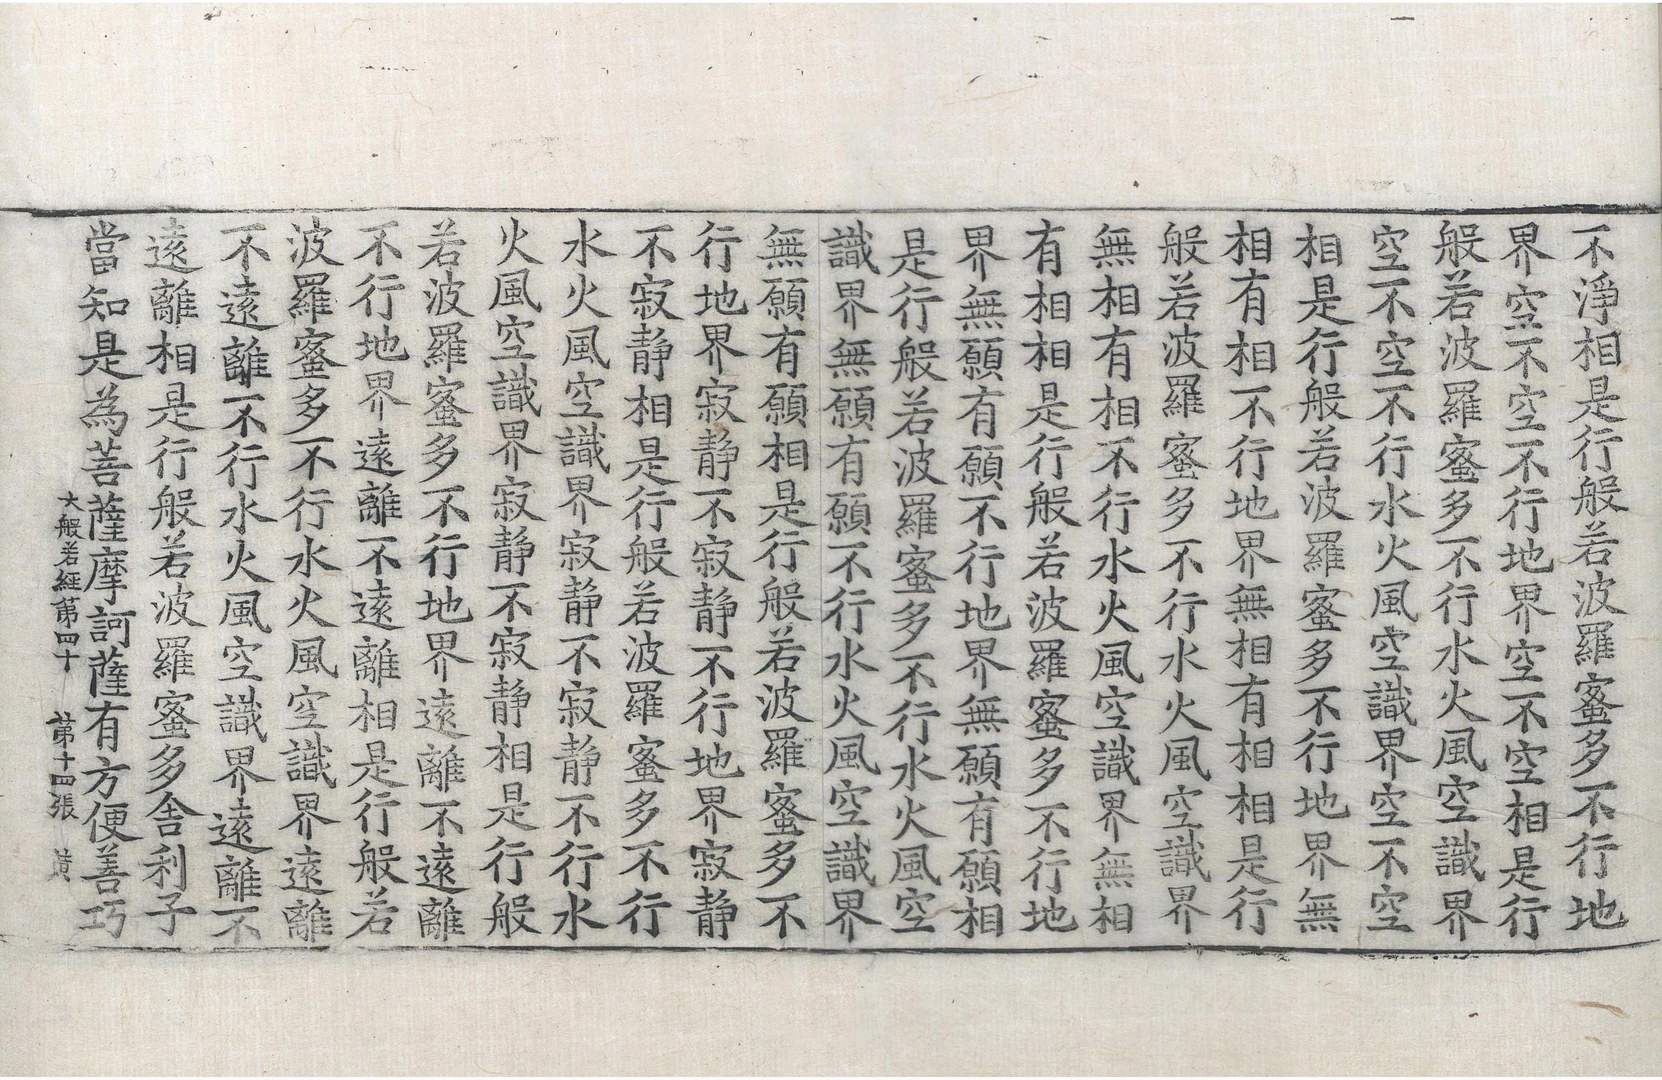 不淨相是行般若波羅蜜多不行地
界空不空不行地界空不空相是行
般若波羅蜜多不行水火風空識界
空不空不行水火風空識界空不空
相是行般若波羅蜜多不行地界無
相有相不行地界無相有相相是行
般若波羅蜜多不行水火風空識界
無相有相不行水火風空識界無相
有相相是行般若波羅蜜多不行地
界無願有願不行地界無願有願相
是行般若波羅蜜多不行水火風空
識界無願有願不行水火風空識界
無願有願相是行般若波羅蜜多不
行地界寂静不寂静不行地界寂静
不寂静相是行般若波羅蜜多不行
水火風空識界寂静不寂静不行水
火風空識界寂静不寂静相是行般
若波羅蜜多不行地界遠離不遠離
不行地界遠離不遠離相是行般若
波羅蜜多不行水火風空識界遠離
不遠離不行水火風空識界遠離不
遠離相是行般若波羅蜜多舍利子
當知是為菩薩摩訶薩有方便善巧
大般若經第四十 第十四張 黄